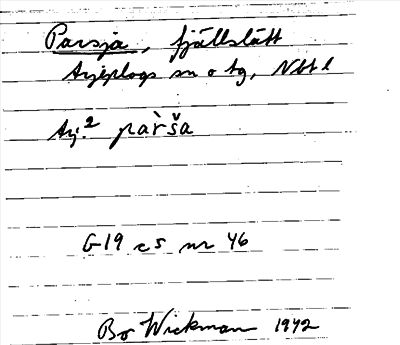 Parsja, fjällslätt
Arjeplogs sn o tg, Nbt l
Arj.² pàrša
G19 c s nr 46
Bo Wickman 1942